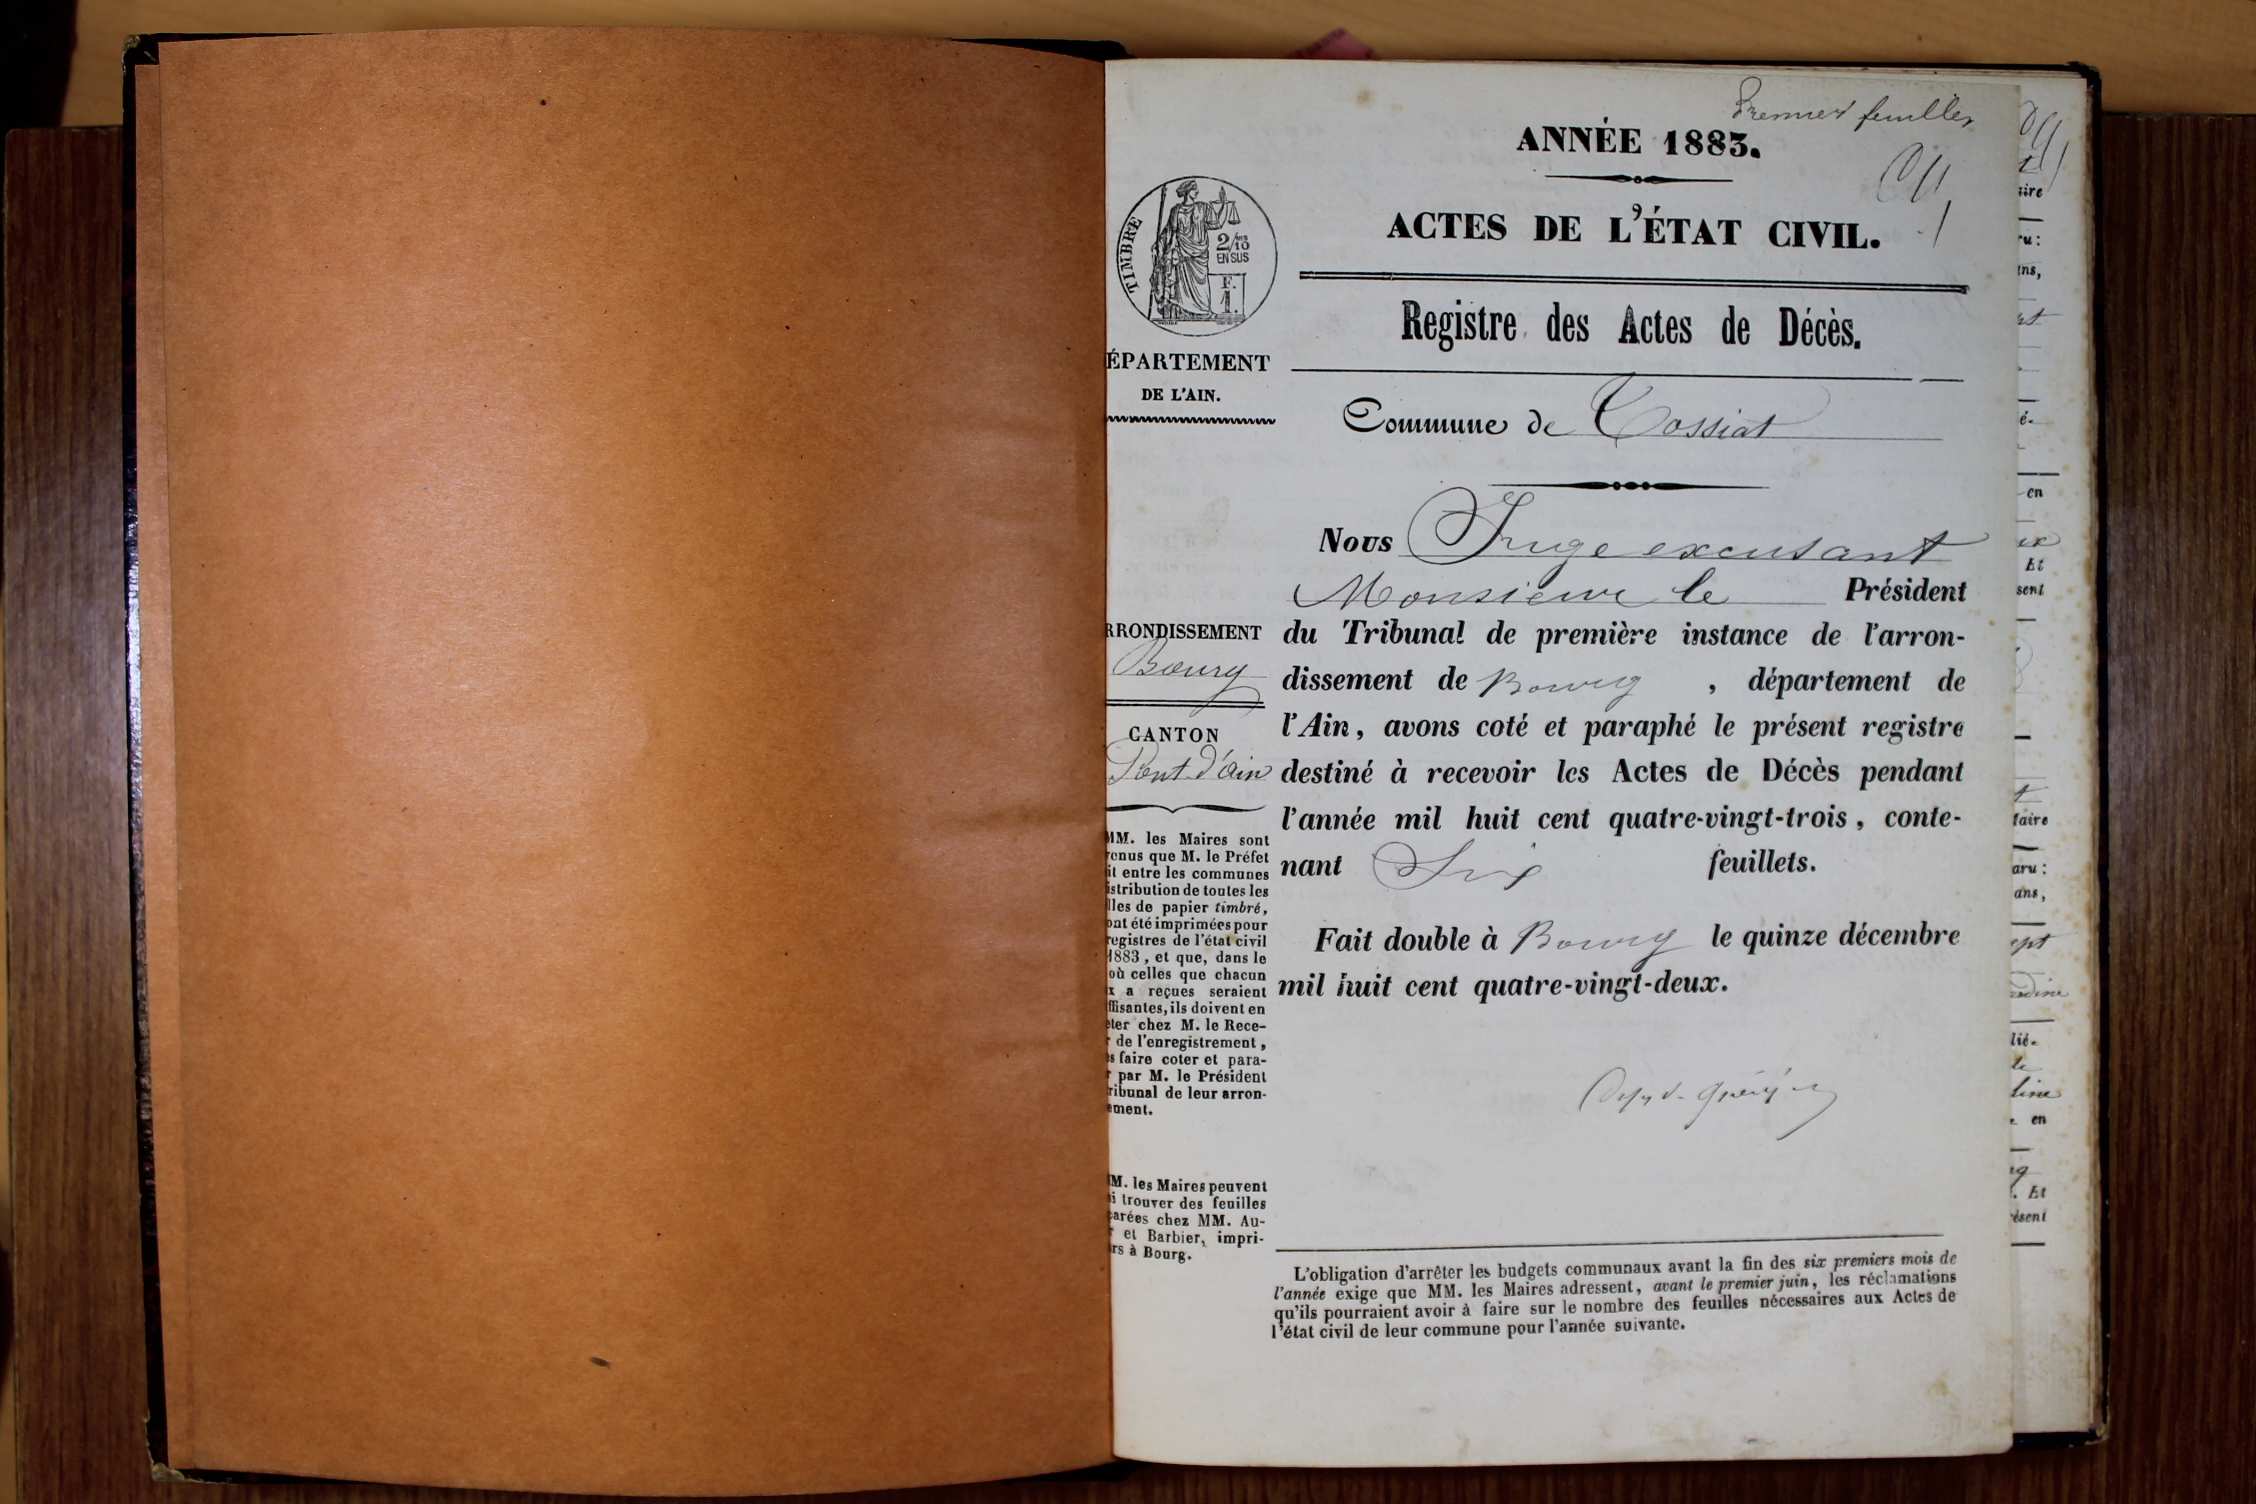 Premier feuillet
ANNÉE 1883.
ACTES DE L'ÉTAT CIVIL.
TIMBRE
2/10
EN SUS
F.
1.
Registre des Actes de Décès.
ÉPARTEMENT
DE L'AIN.
Commune de Tossiat
Nous Juge excusant
Monsieur le Président
du Tribunal de première instance de l'arron-
dissement de Bourg , département de
l'Ain, avons coté et paraphé le présent registre
destiné à recevoir les Actes de Décès pendant
l'année mil huit cent quatre-vingt-trois, conte-
nant Six feuillets.
Fait double à Bourg le quinze décembre
mil huit cent quatre-vingt-deux.
RRONDISSEMENT
Bourg
CANTON
Pont d'ain
MM. les Maires sont
venus que M. le Préfet
it entre les communes
istribution de toutes les
lles de papier timbré,
ont été imprimées pour
registres de l'état civil
1883, et que, dans le
où celles que chacun
x a reçues seraient
ffisantes, ils doivent en
eter chez M. le Rece-
r de l'enregistrement,
es faire coter et para-
r par M. le Président
ribunal de leur arron-
ement.
M. les Maires peuvent
i trouver des feuilles
parées chez MM. Au-
r et Barbier, impri-
rs à Bourg.
L'obligation d'arrêter les budgets communaux avant la fin des six premiers mois de
l'année exige que MM. les Maires adressent, avant le premier juin, les réclamations
qu'ils pourraient avoir à faire sur le nombre des feuilles nécessaires aux Actes de
l'état civil de leur commune pour l'année suivante.